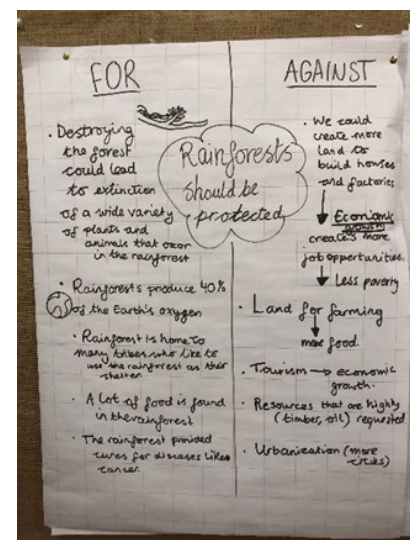 FOR
AGAINST
Rainforests
should be
protected
. Destroying
the forest
could lead
to extinction
of a wide variety
of plants and
animals that occur
in the rainforest
. Rainforests produce 40%
of the Earth's oxygen
. Rainforest is home to
many tribes who like to
use the rainforest as their
shelter
. A lot of food is found
in the rainforest
. The rainforest provided
cures for diseases like
cancer.
. We could
create more
land to
build houses
and factories
↓ Economic
growth
creates more
job opportunities.
↓ Less poverty
. Land for farming
↓
more food.
. Tourism → economic
growth.
. Resources that are highly
(timber, oil) requested
. Urbanisation (more
cities)